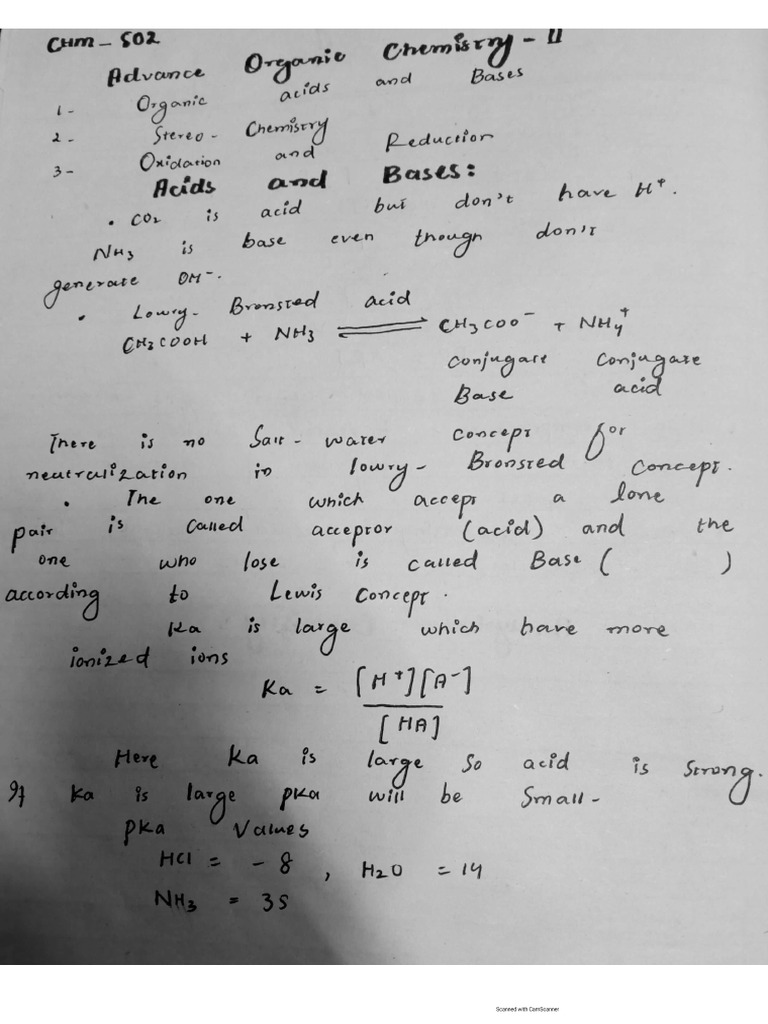 CHM - 502
Advance Organic Chemistry - II
1- Organic acids and Bases
2- Stereo- Chemistry
3- Oxidation and Reduction
Acids and Bases:
• CO₂ is acid but don't have H⁺.
NH₃ is base even though don't
generate OH⁻.
• Lowry- Bronsted acid
CH₃COOH + NH₃ ⇌ CH₃COO⁻ + NH₄⁺
conjugate conjugate
Base acid
There is no Salt- water concept for
neutralization in lowry- Bronsted concept.
• The one which accept a lone
pair is called acceptor (acid) and the
one who lose is called Base ( )
according to Lewis Concept.
Ka is large which have more
ionized ions
Ka = [H⁺][A⁻]
[HA]
Here Ka is large so acid is strong.
If Ka is large pKa will be small-
pKa Values
HCl = - 8 , H₂O = 14
NH₃ = 35
Scanned with CamScanner